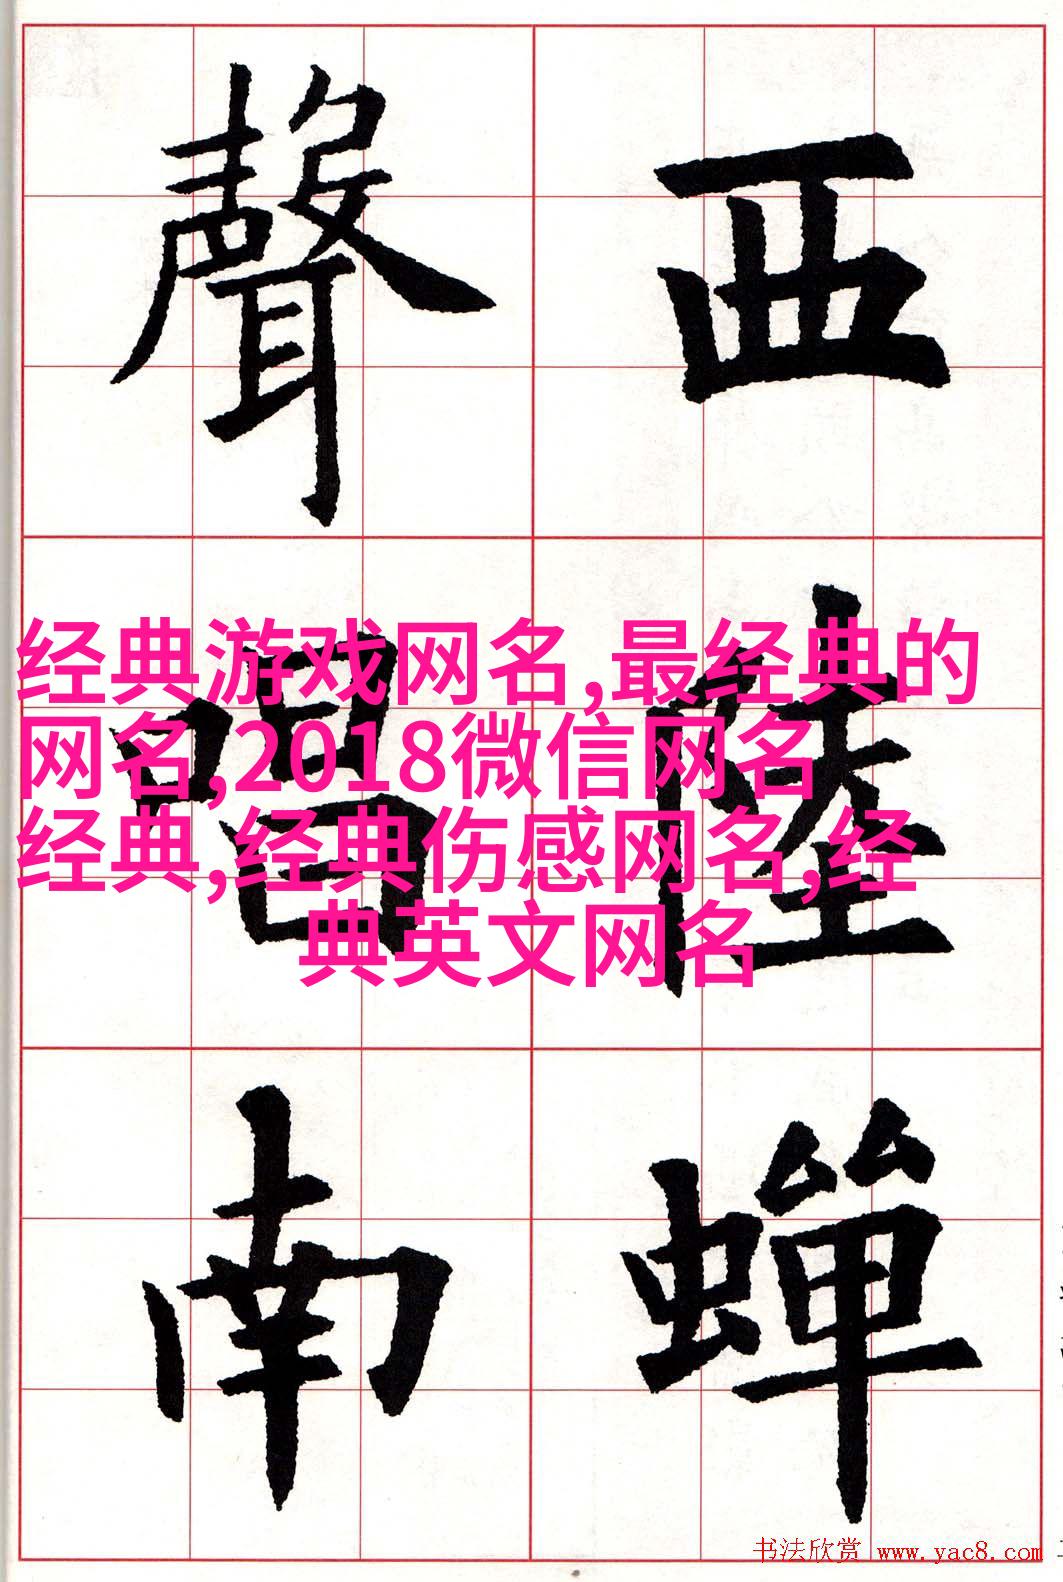 西陸蟬
聲唱南
经典游戏网名,最经典的
网名,2018微信网名
经典,经典伤感网名,经
典英文网名
书法欣赏 www.yac8.com